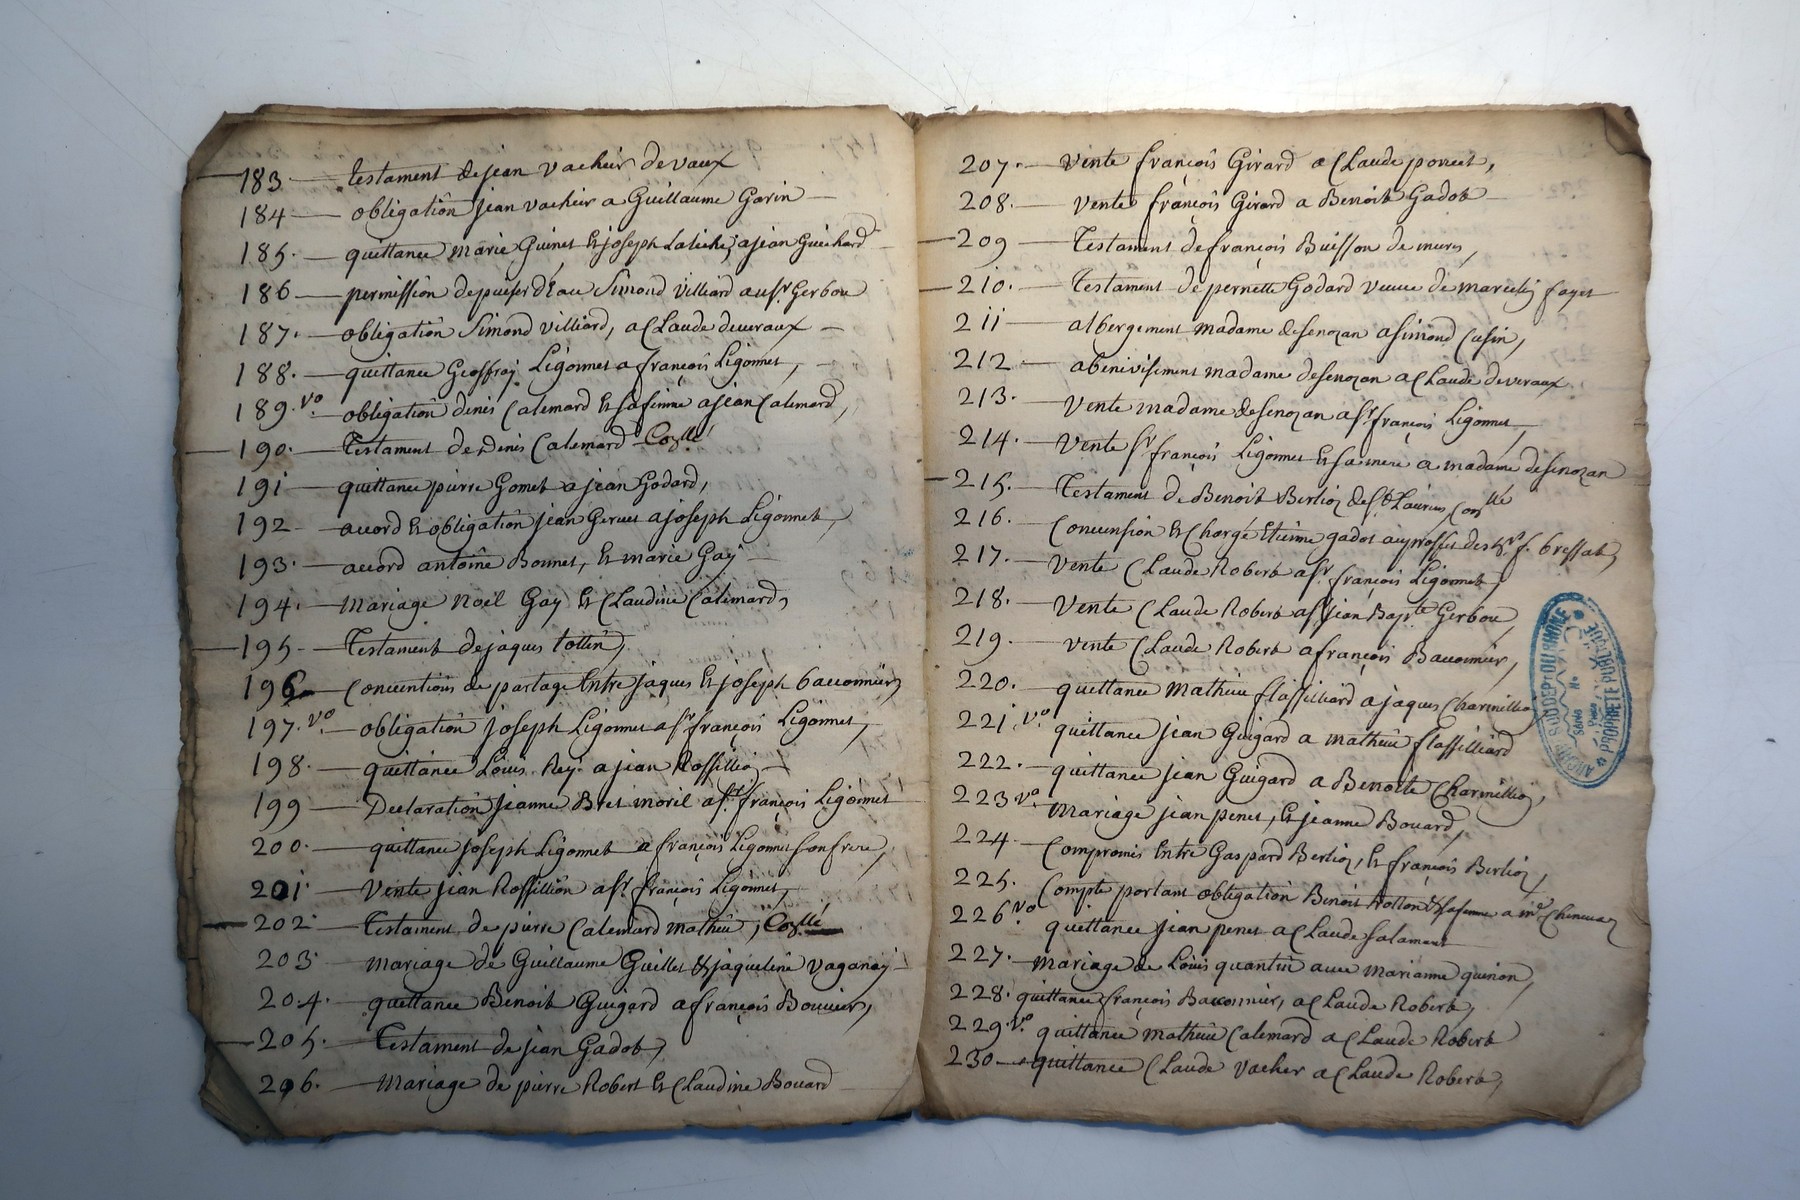 183. testament de jean vacheir de vaux
184 obligation jean vacheir a Guillaume Garin
185. quittance marie Guinet et joseph Latiche, a jean Guichard
186 permission de puiser d'Eau Simond Villiard au sr. Gerbou
187. obligation Simond Villiard, a Claude deveraux
188. quittance Geoffray Ligonnet a françois Ligonnet,
189. vo. obligation denis Calemard et sa femme a jean Calemard,
190. Testament de Denis Calemard
191 quittance pierre Gomet a jean Godard,
192 acord et obligation jean Gervet a joseph Ligonnet,
193. acord antoine Bonnet, et marie Gay
194. Mariage Noel Gay et Claudine Calemard,
195. Testament de jaques tottin,
196 Conventions de partage Entre jaques et joseph bacconnier,
197. vo. obligation joseph Ligonnet a sr. françois Ligonnet,
198. quittance Louis Rey a jean Rossillio
199 Declaration jeanne Bret moril a sr. françois Ligonnet
200. quittance joseph Ligonnet a françois Ligonnet son frere,
201 Vente jean Rossillion a sr. françois Ligonnet,
202. Testament de pierre Calemard mathieu,
203 mariage de Guillaume Guillet et jaqueline Vaganay
204. quittance Benoit Guigard a françois Bouvier,
205. Testament de jean Gadot,
206. Mariage de pierre Robert et Claudine Bouard
207. Vente françois Girard a Claude poncet,
208. Vente françois Girard a Benoit Gadot
209 Testament de françois Buisson de murs,
210. Testament de pernette Godard veuve de fayet
211 albergement madame de senozan a simond Cusin,
212 abenevisement madame de senozan a Claude deveraux
213. Vente madame de senozan a sr. françois Ligonnet,
214. Vente sr. françois Ligonnet et sa mere a madame de senozan
215. Testament de Benoit Berlioz de st. Laurens
216. Etienne gadot au proffit des
217. Vente Claude Robert a sr. françois Ligonnet,
218. Vente Claude Robert a sr. jean Bapte Gerbou,
219. Vente Claude Robert a françois Baconnier,
220. quittance Mathieu flassilliard a jaques Charmillio,
221. vo. quittance jean Guigard a mathieu flassilliard
222. quittance jean Guigard a Benoite Charmillio,
223 vo. Mariage jean penet, et jeanne Bouard,
224. Compromis Entre Gaspard Berlioz, et françois Berlioz,
225. Compte portant obligation Benoit trotton et sa femme a
226 vo. quittance jean penet a Claude salamant
227. Mariage de Louis quantin avec Marianne quinon,
228. quittance françois Baconnier, a Claude Robert,
229. vo. quittance mathieu Calemard a Claude Robert
230 quittance Claude Vacher a Claude Robert,
PROPRIETE PUBLIQUE